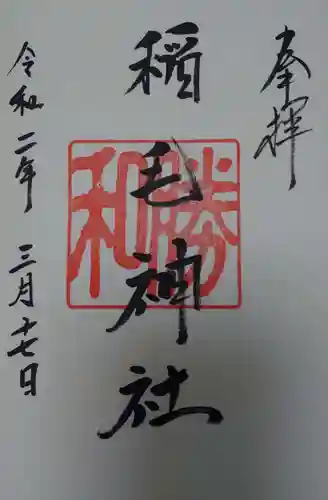 奉拝
稲毛神社
勝和
令和二年三月十七日